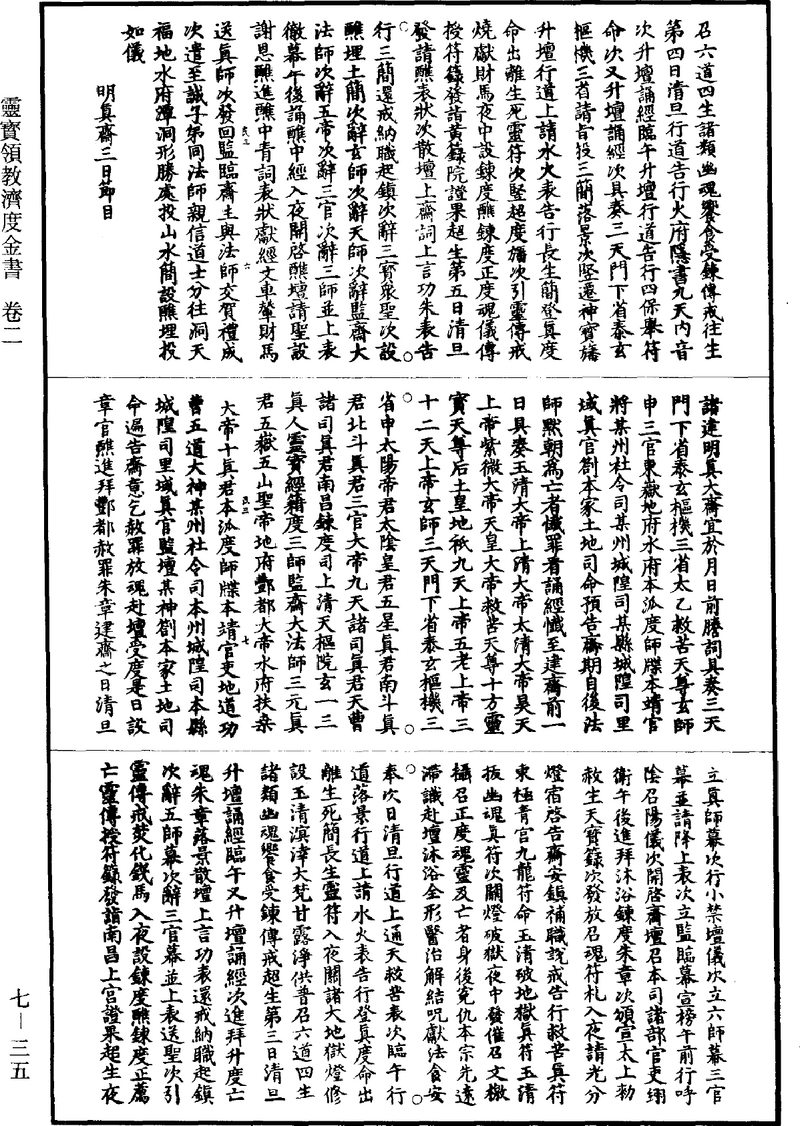 召六道四生諸類幽魂饗食受鍊傳戒往生
第四日清旦行道告行火府隱書九天內音
次升壇誦經臨午升壇行道告行四保舉符
命次又升壇誦經次具奏三天門下省泰玄
樞機三省請旨投三簡落景次竪遷神寶旛
升壇行道上請水火表告行長生簡登真度
命出離生死靈符次竪超度旛次引靈傳戒
燒獻財馬夜中設鍊度醮鍊度正度魂儀傳
授符籙發諸黃籙院證果超生第五日清旦
發請醮表狀次散壇上齋詞上言功朱表告
行三簡還戒納職起鎮次辭三寶衆聖次設
醮埋土簡次辭玄師次辭天師次辭監齋大
法師次辭五帝次辭三官次辭三師並上表
徹幕午後誦醮中經入夜開啓醮壇請聖設
謝恩醮進醮中青詞表狀獻經文車輦財馬
送真師次發回監臨齋主與法師交賀禮成
次遣至誠子弟同法師親信道士分往洞天
福地水府潭洞形勝處投山水簡設醮埋投
如儀
明真齋三日節目
諸建明真大齋宜於月日前牒詞具奏三天
門下省泰玄樞機三省太乙救苦天尊玄師
申三官東嶽地府水府本派度師牒本靖官
將某州社令司某州城隍司某縣城隍司里
域真官劄本家土地司命預告齋期自後法
師黙朝爲亡者懴罪看誦經懴至建齋前一
日具奏玉清大帝上清大帝太清大帝昊天
上帝紫微大帝天皇大帝救苦天尊十方靈
寶天尊后土皇地祇九天上帝五老上帝三
十二天上帝玄師三天門下省泰玄樞機三
省申太陽帝君太陰皇君五星真君南斗真
君北斗真君三官大帝九天諸司真君天曹
諸司真君南昌鍊度司上清天樞院玄一三
真人靈寶經籍度三師監齋大法師三元真
君五嶽五山聖帝地府酆都大帝水府扶桑
大帝十真君本派度師牒本靖官吏地道功
曹五道大神某州社令司本州城隍司本縣
城隍司里域真官監壇某神劄本家土地司
命遍告齋意乞赦罪放魂赴壇受度是日設
章官醮進拜酆都赦罪朱章建齋之日清旦
立真師幕次行小禁壇儀次立六師幕三官
幕並請降上表次立監臨幕宣榜午前行呼
陰召陽儀次開啓齋壇召本司諸部官吏翊
衛午後進拜沐浴鍊度朱章次頒宣太上勑
赦生天寶籙次發放召魂符札入夜請光分
燈宿啓告齋安鎮補職說戒告行救苦真符
東極青宮九龍符命玉清破地獄真符玉清
拔幽魂真符次關燈破獄夜中發催召文檄
攝召正度魂靈及亡者身後冤仇本宗先遠
滯識赴壇沐浴全形醫治解結呪獻法食安
奉次日清旦行道上通天救苦表次臨午行
道落景行道上請水火表告行登真度命出
離生死簡長生靈符入夜關諸大地獄燈修
設玉清溟涬大梵甘露淨供普召六道四生
諸類幽魂饗食受鍊傳戒超生第三日清旦
升壇誦經臨午又升壇誦經次進拜升度亡
魂朱章落景散壇上言功表還戒納職起鎮
次辭五師幕次辭三官幕並上表送聖次引
靈傳戒焚化錢馬入夜設鍊度醮鍊度正薦
亡靈傳授符籙發諸南昌上宮證果超生夜
靈寶領教濟度金書 卷二
七－三五